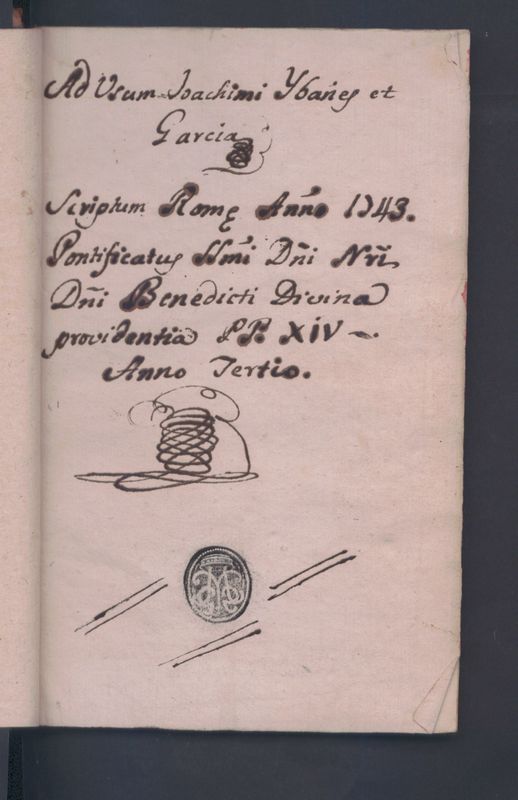 Ad Usum Joachimi Ybañes et
Garcia
Scriptum Romę Anno 1743.
Pontificatus SSmi Dñi Nri
Dñi Benedicti Divina
providentia PP. XIV
Anno Tertio.